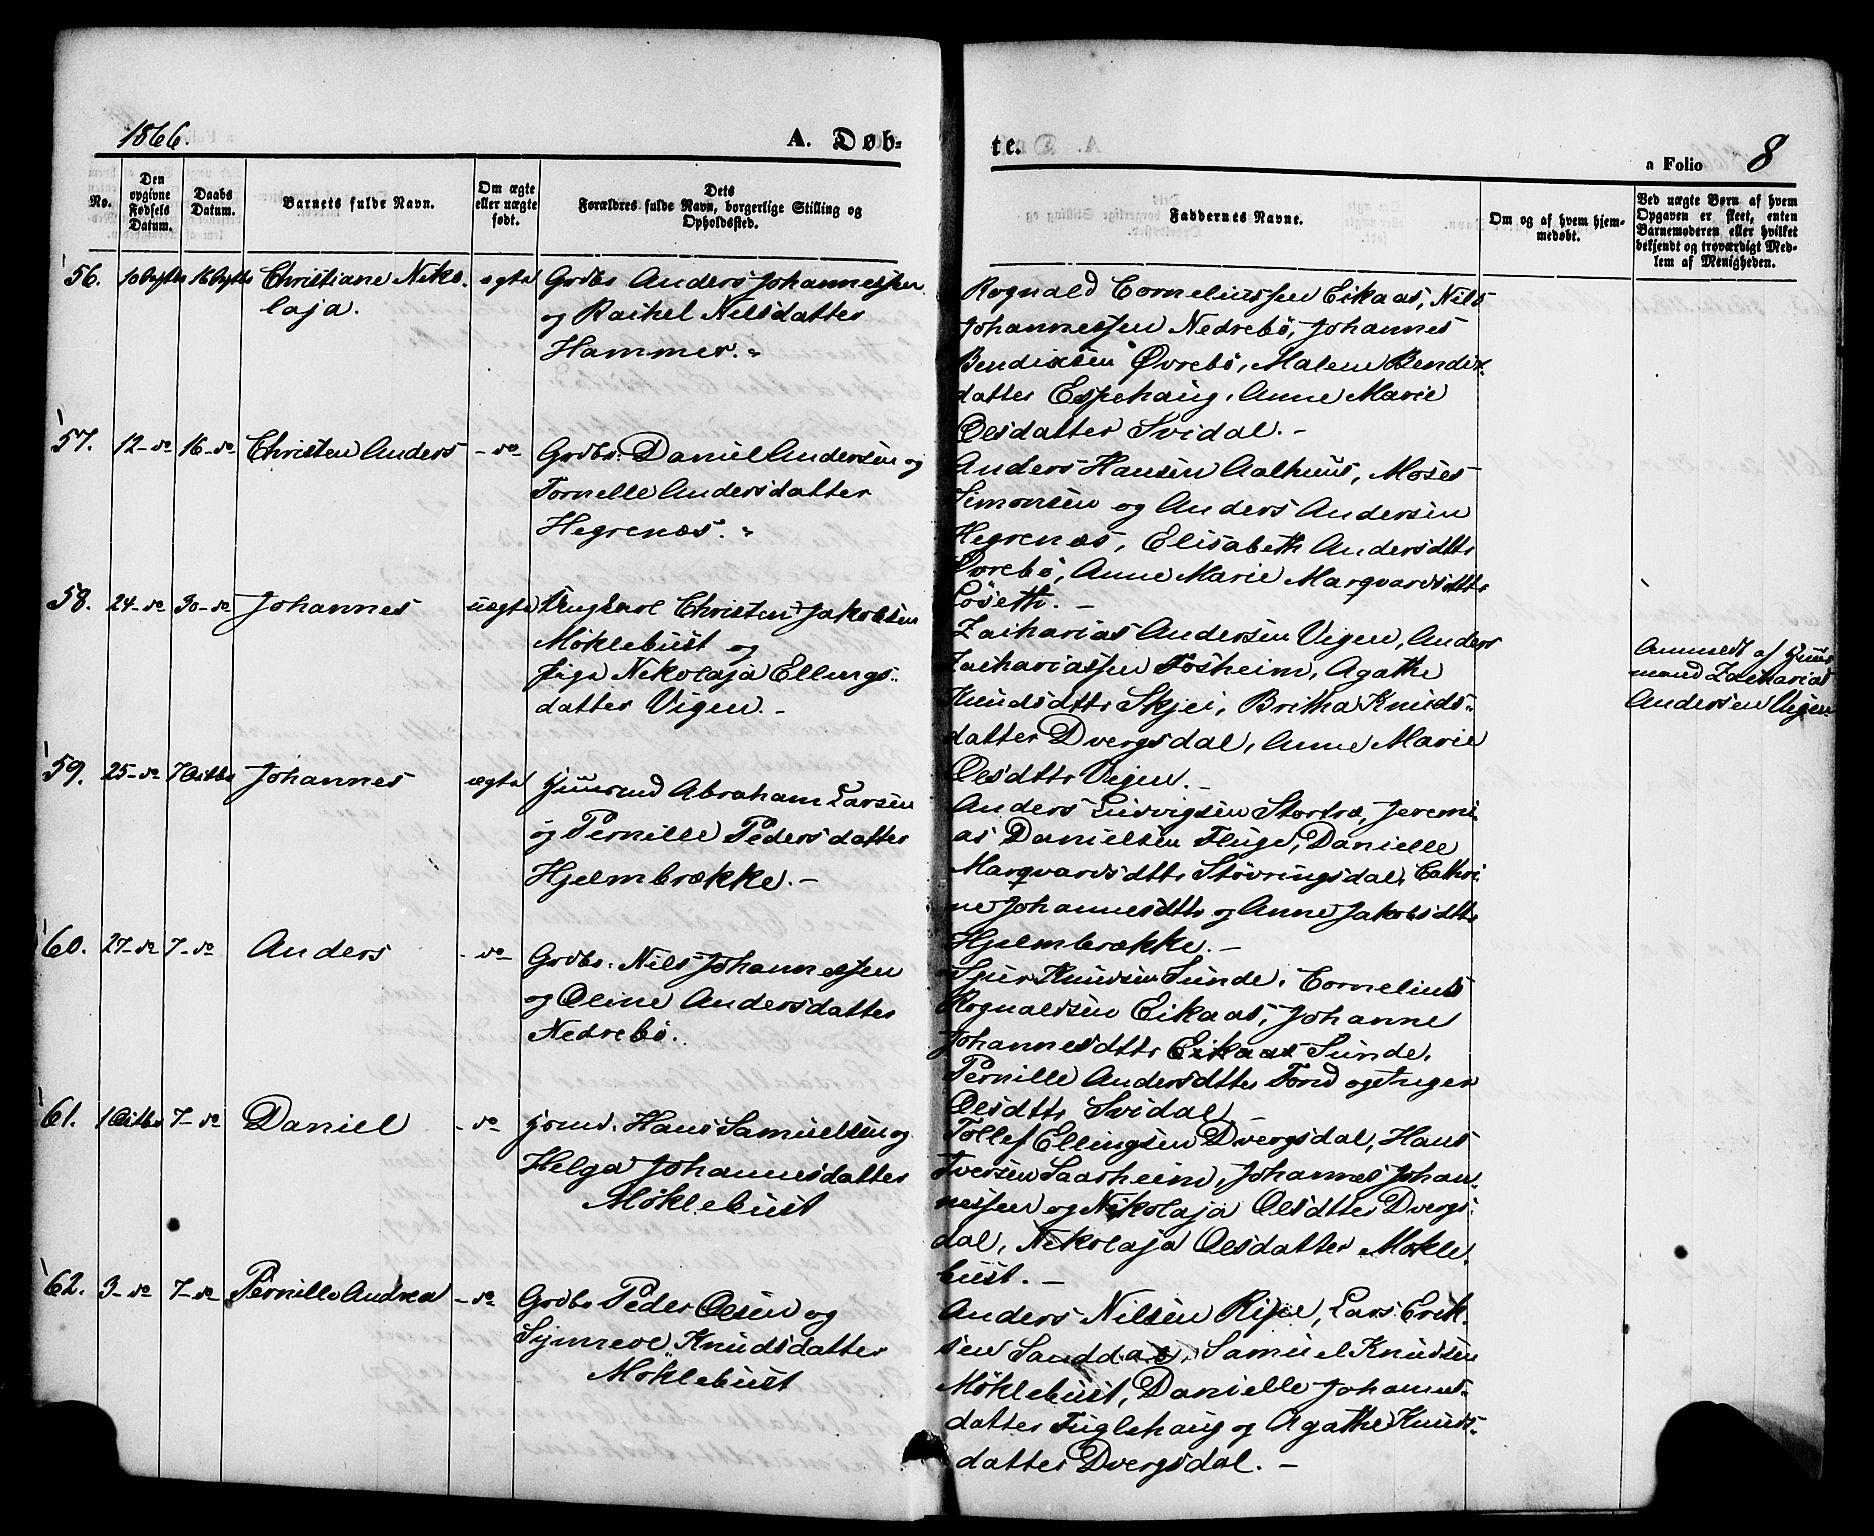 1866.
A. Døb-
te.
a Folio 8
No.
Den opgivne Fødsels Datum.
Daabs Datum.
Barnets fulde Navn.
Om ægte eller uægte født.
Dets
Forældres fulde Navn, borgerlige Stilling og
Opholdssted.
Faddernes Navne.
Om og af hvem hjem-
medøbt.
Ved uægte Børn af hvem
Opgaven er skeet, enten
Barnemoderen eller hvilket
bekjendt og troværdigt Med-
lem af Menigheden.
56. Christiane Niko- ægte Grdbr Anders Johannessen
laja. og Rachel Nilsdatter
Hammer.
Rognald Corneliussen Eikaas, Nils
Johannessen Nedrebö, Johannes
Bendixsen Øvrebö, Malene Bendix-
datter Espehaug, Anne Marie
Olsdatter Svidal. -
57. 12-do 16-do Christen Anders -do Grdbr. Daniel Andersen og
Tornelle Andersdatter
Hegrenæs.
Anders Hansen Aalhuus, Moses
Simonsen og Anders Andersen
Hegrenæs, Elisabeth Andersdttr
Øvrebö, Anne Marie Marqvardsdttr
Löseth. -
58. 24-do 30-do Johannes uægte Ungkarl Christen Jakobsen
Möklebust og
Pige Nikolaja Ellings-
datter Vigen. -
Zacharias Andersen Vigen, Anders
Zachariassen Fosheim, Agathe
Knudsdttr Skjei, Britha Knuds-
datter Dvergsdal, Anne Marie
Olsdttr Vigen. -
Anmeldt af Huus-
mand Zacharias
Andersen Vigen
59. 25-do 7 Octbr Johannes ægte Huusmd Abraham Larsen
og Pernille Pedersdatter
Hjelmbrække. -
Anders Ludvigsen Stortræ, Jeremi-
as Danielsen Fluge, Danielle
Marqvardsdttr Stövringsdal, Cathri-
ne Johannesdttr og Anne Jakobsdttr
Hjelmbrække. -
60. 27-do 7-do Anders -do Grdbr. Nils Johannessen
og Oline Andersdatter
Nedrebö.
Sjur Knudsen Sunde, Cornelius
Rognaldsen Eikaas, Johanne
Johannesdttr Eikaas Sunde,
Pernille Andersdtter Förd og Inger
Olsdttr Svidal -
61. 1 Octbr 7-do Daniel -do Hans Samuelsen og
Helga Johannesdatter
Möklebust
Tollef Ellingsen Dvergsdal, Hans
Iversen Saarheim, Johannes Johan-
nessen og Nikolaja Olsdtter Dvergs-
dal, Nikolaja Olsdatter Mökle-
bust. -
62. 3-do 7-do Pernille Andrea -do Grdbr Peder Olsen og
Synneve Knudsdatter
Möklebust
Anders Nilsen Ripe, Lars Erik-
sen Sanddal, Samuel Knudsen
Möklebust, Danielle Johannes-
datter Fuglehaug og Agathe Knuds-
datter Dvergsdal. -